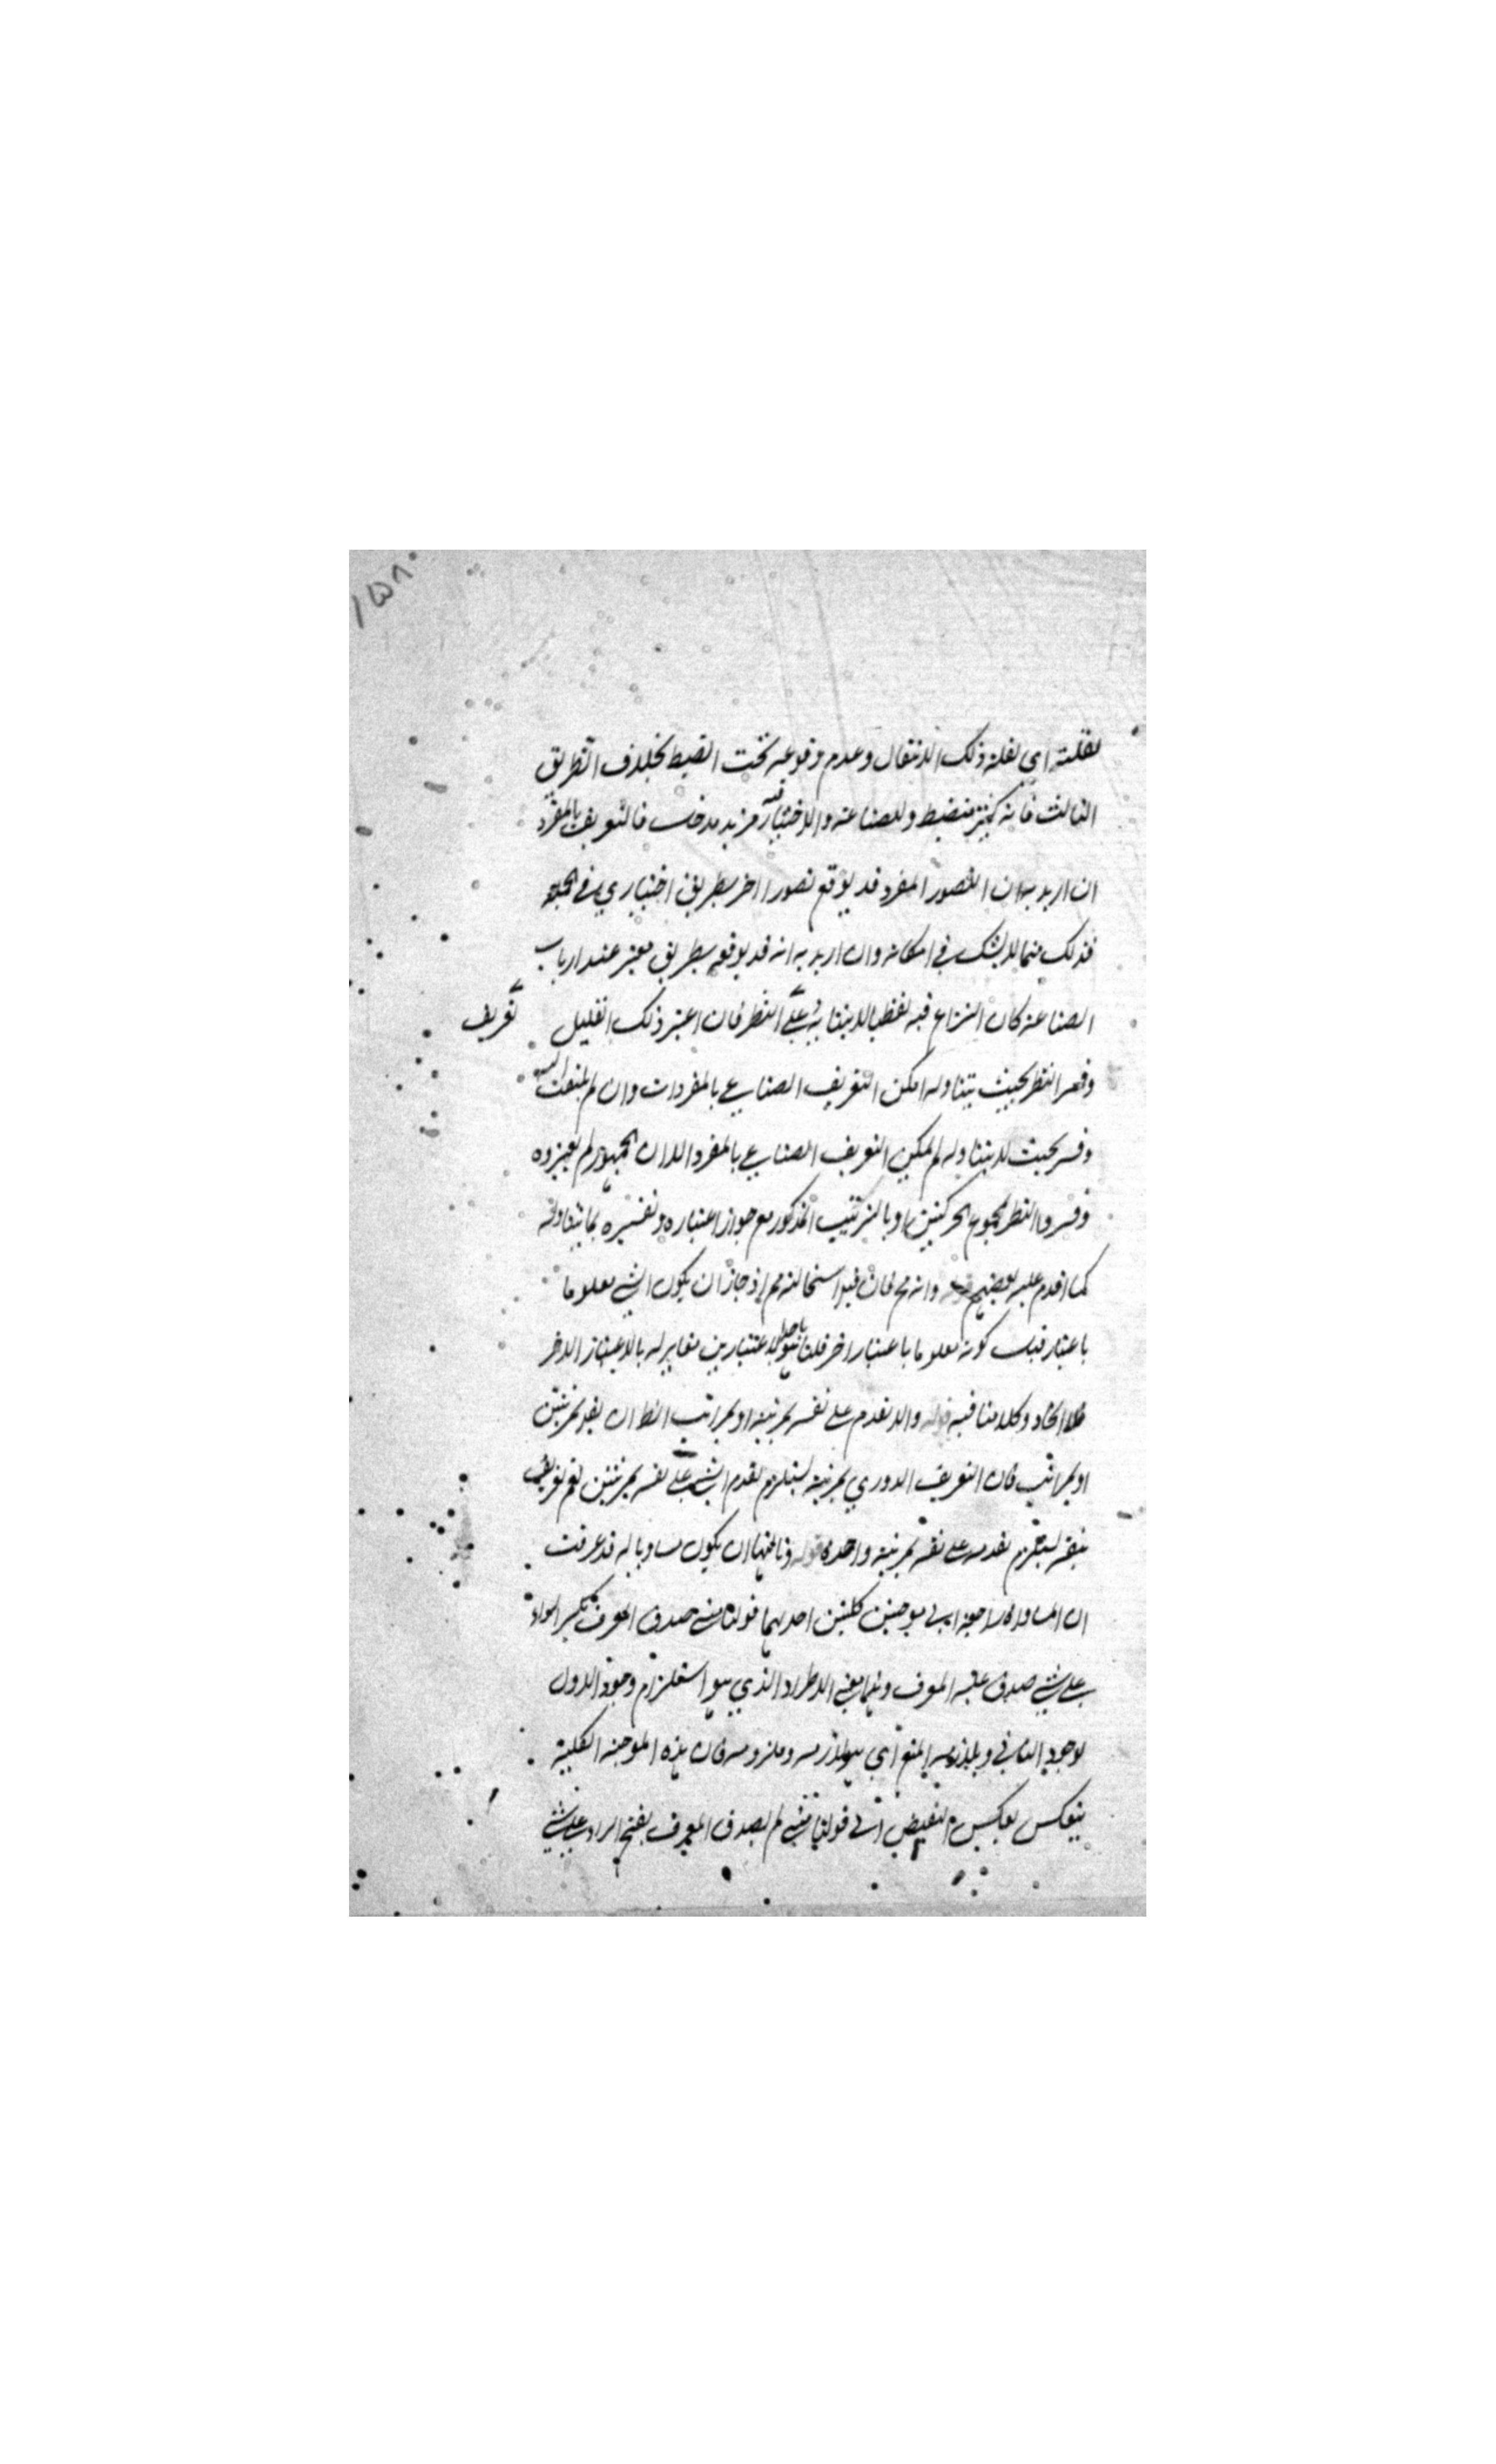 ١٥٨
لقلته اي لقلة ذلك الانتقال وعدم وقوعه تحت الضبط بخلاف الطريق
الثالث فانه كثير منضبط وللصناعة والاختيار فيه مزيد مدخل فالتعريف بالمفرد
ان اريد به ان التصور المفرد قد يوقع تصورا اخر بطريق اختياري في الجملة
فذلك مما لا يشك في امكانه وان اريد به انه قد يوقعه بطريق معتبر عند ارباب
الصناعة كان النزاع فيه لفظيا لابتنائه على النظر فان اعتبر ذلك القليل تعريف
وفسر النظر بحيث يتناوله امكن التعريف الصناعي بالمفردات وان لم يلتفت اليه
وفسر بحيث لا يتناوله لم يمكن التعريف الصناعي بالمفرد الا ان الجمهور لم يعتبروه
وفسروا النظر بمجموع الحركتين او بالترتيب المذكور مع جواز اعتباره وتفسيره بما يتناوله
كما اقدم عليه بعضهم قوله وانه مح فان قيل استحالته مم اذ جاز ان يكون الشي معلوما
باعتبار قبل كونه معلوما باعتبار اخر قلنا هو باحد الاعتبارين مغاير له بالاعتبار الاخر
فلا اتحاد وكلامنا فيه قوله والا تقدم على نفسه بمرتبة او بمراتب الظ ان يقو بمرتبتين
او بمراتب فان التعريف الدوري بمرتبة يستلزم تقدم الشي على نفسه بمرتبتين نعم تعريف الشي
بنفسه يستلزم تقدمه على نفسه بمرتبة واحدة قوله وثالثها ان يكون مساويا له قد عرفت
ان المساواة راجعة الى موجبتين كليتين احديهما قولنا متى صدق المعرف بكسر الراء
على شي صدق عليه المعرف وهما معنى الاطراد الذي هو استلزام وجود الاول
لوجود الثاني ويلازمه المنع اي هو لازمه وملزومه فان هذه الموجبة الكلية
ينعكس بعكس النقيض الى قولنا متى لم يصدق المعرف بفتح الراء على شي